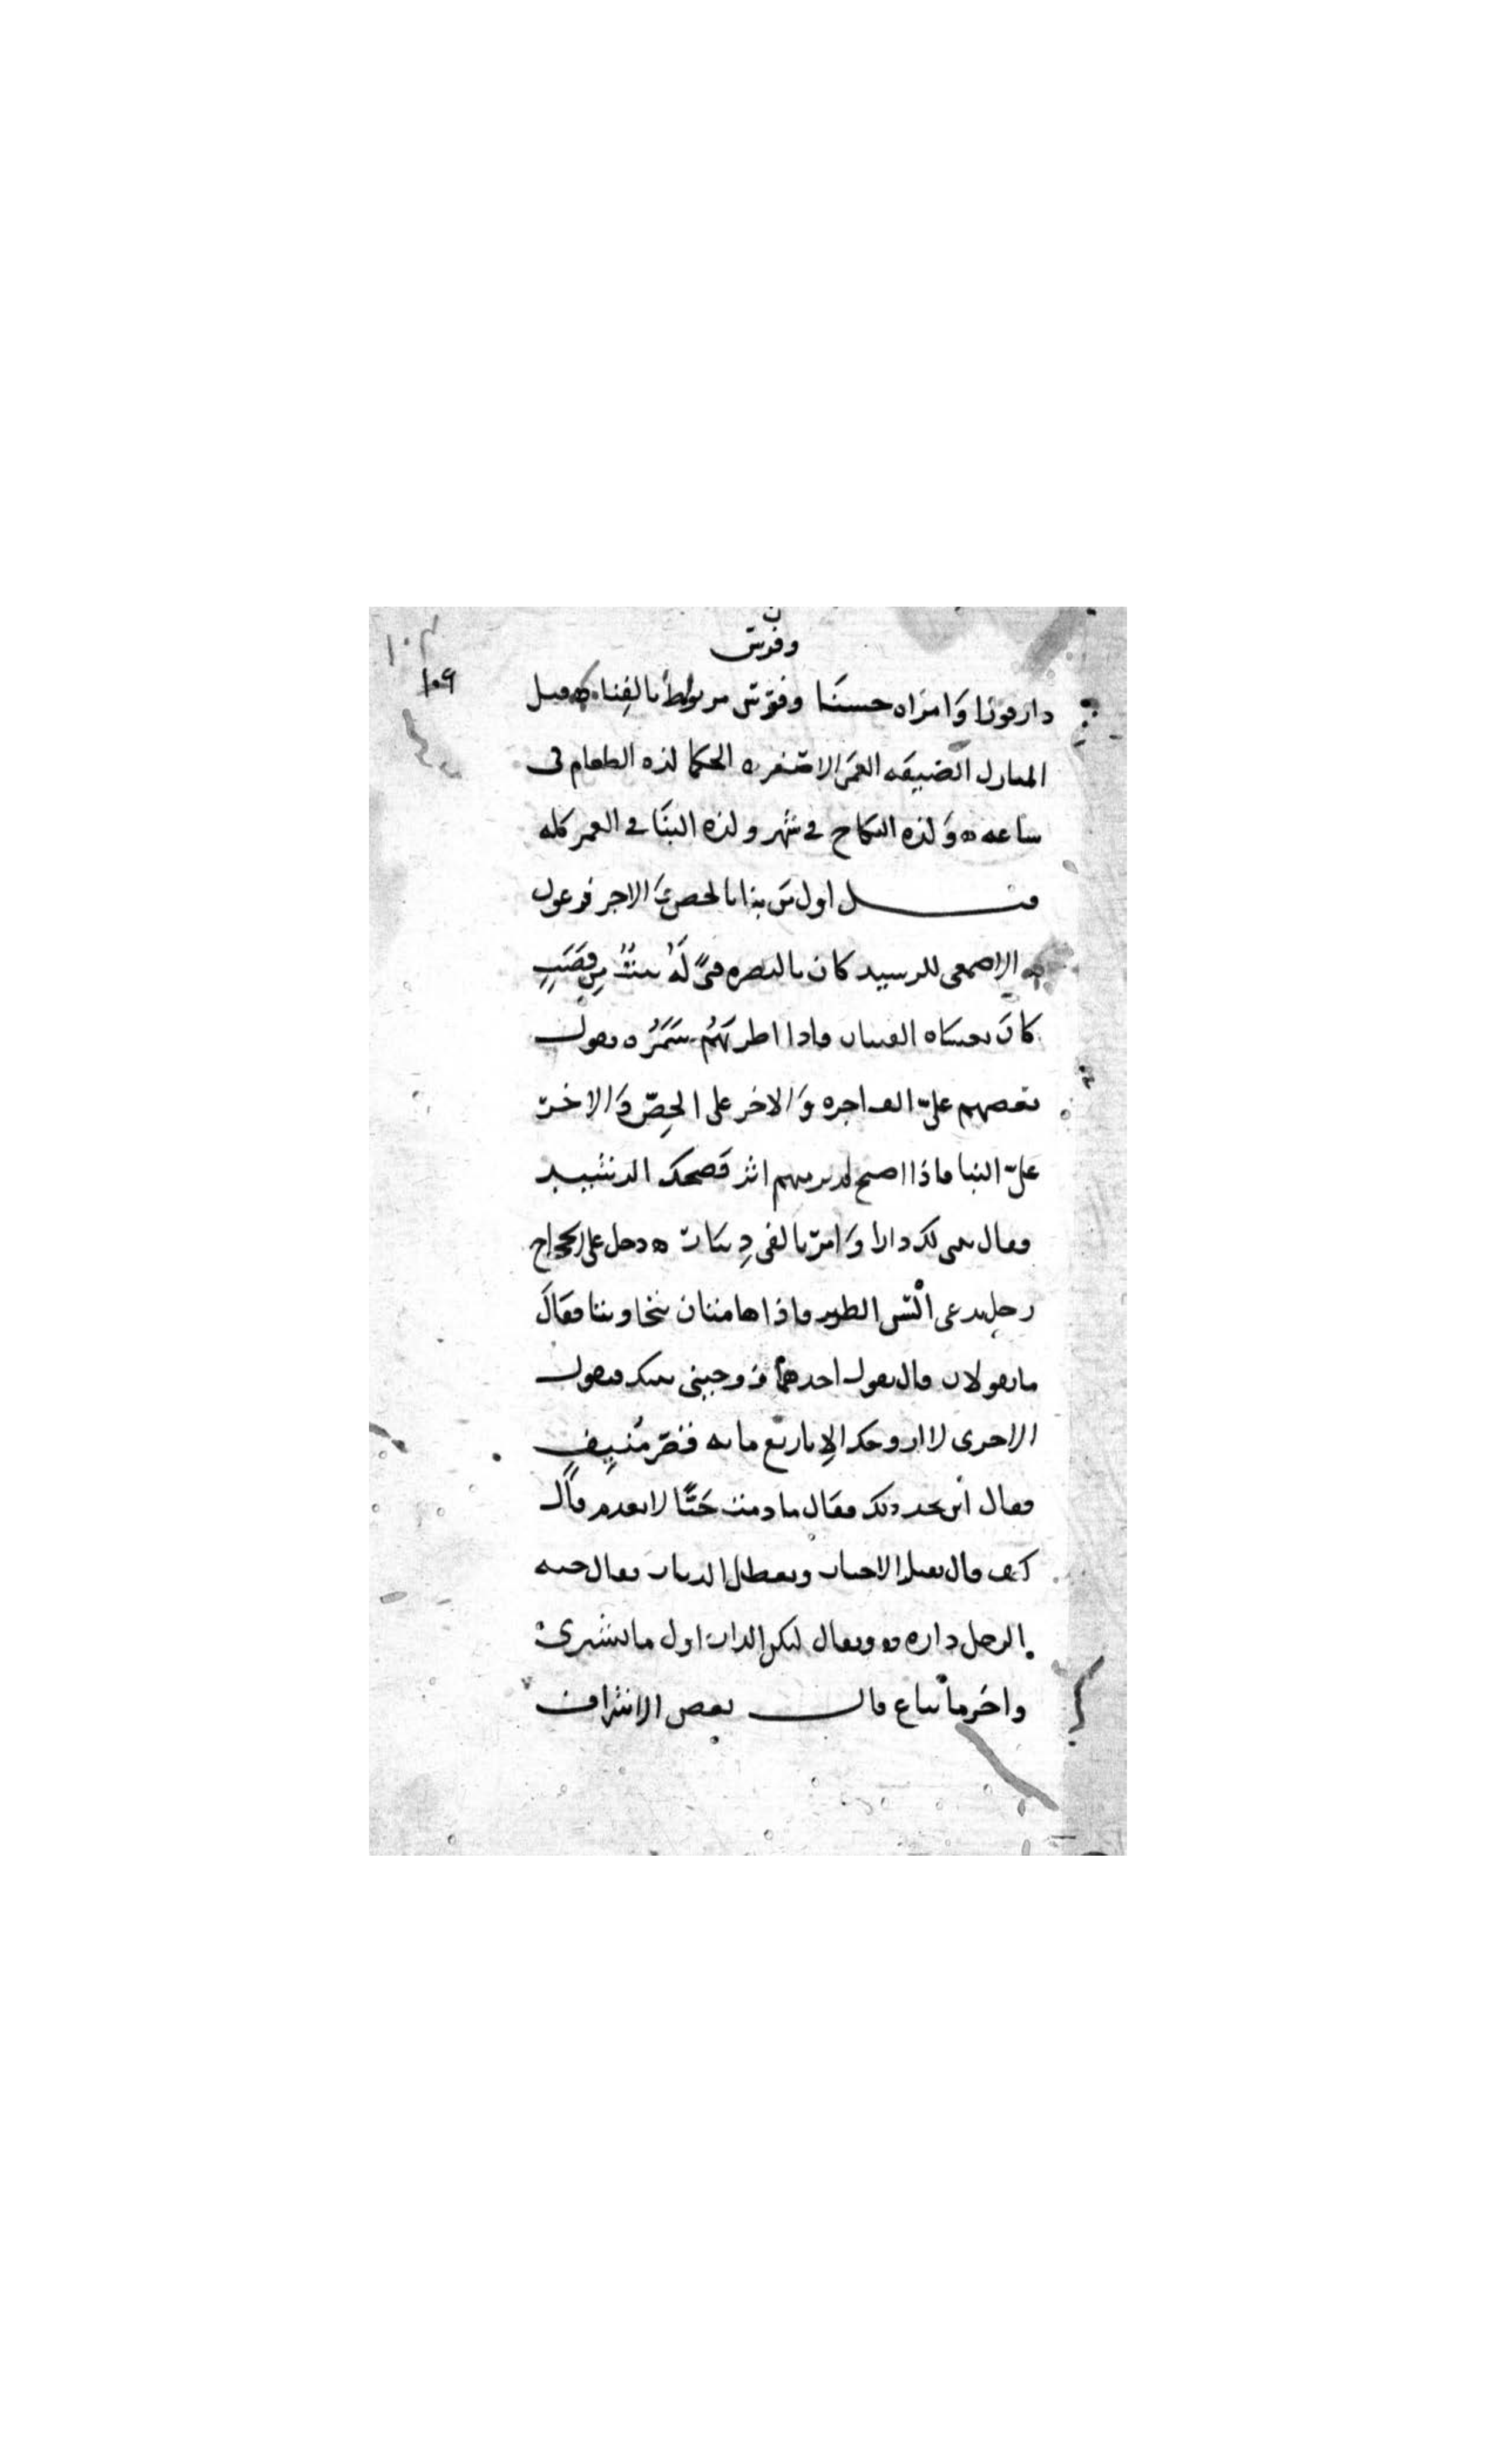 وفرس
١٠٩
دار قورا وامراه حسنا وفرس مربوط بالفنا ٥ قيل
المنازل الضيقه العمى الاصغر ٥ الحكما لذه الطعام فى
ساعه ٥ ولذه النكاح في شهر ولذه البنا في العمر كله
قيل اول من بنا بالجص والاجر فرعون
الاصمعى للرشيد كان بالبصره فتى له بيت من قصب
كان يغشاه الفتيان فاذا اطربهم سمره يقول
بعضهم على الف اجره والاخر على الجص والاخر
على البنا فاذا اصبح لم ير منهم اثر فضحك الرشيد
وقال نبنى لك دارا وامر بالفى دينار ٥ دخل على الحجاج
رجل يدعى الطير فاذا هامتان فقال
ما يقولان قال يقول احدهما زوجينى بنتك فيقول
الاخرى لا ازوجك الا باربع مايه قصر منيف
فقال اين نجد ذلك فقال ما دمت حيا لا نعدم قال
كيف قال تقتل الاخيار وتعطل الديار يقال جنه
الرجل داره ٥ ويقال ليكن الدار اول ما يشترى
واخر ما يباع قال بعض الاشراف